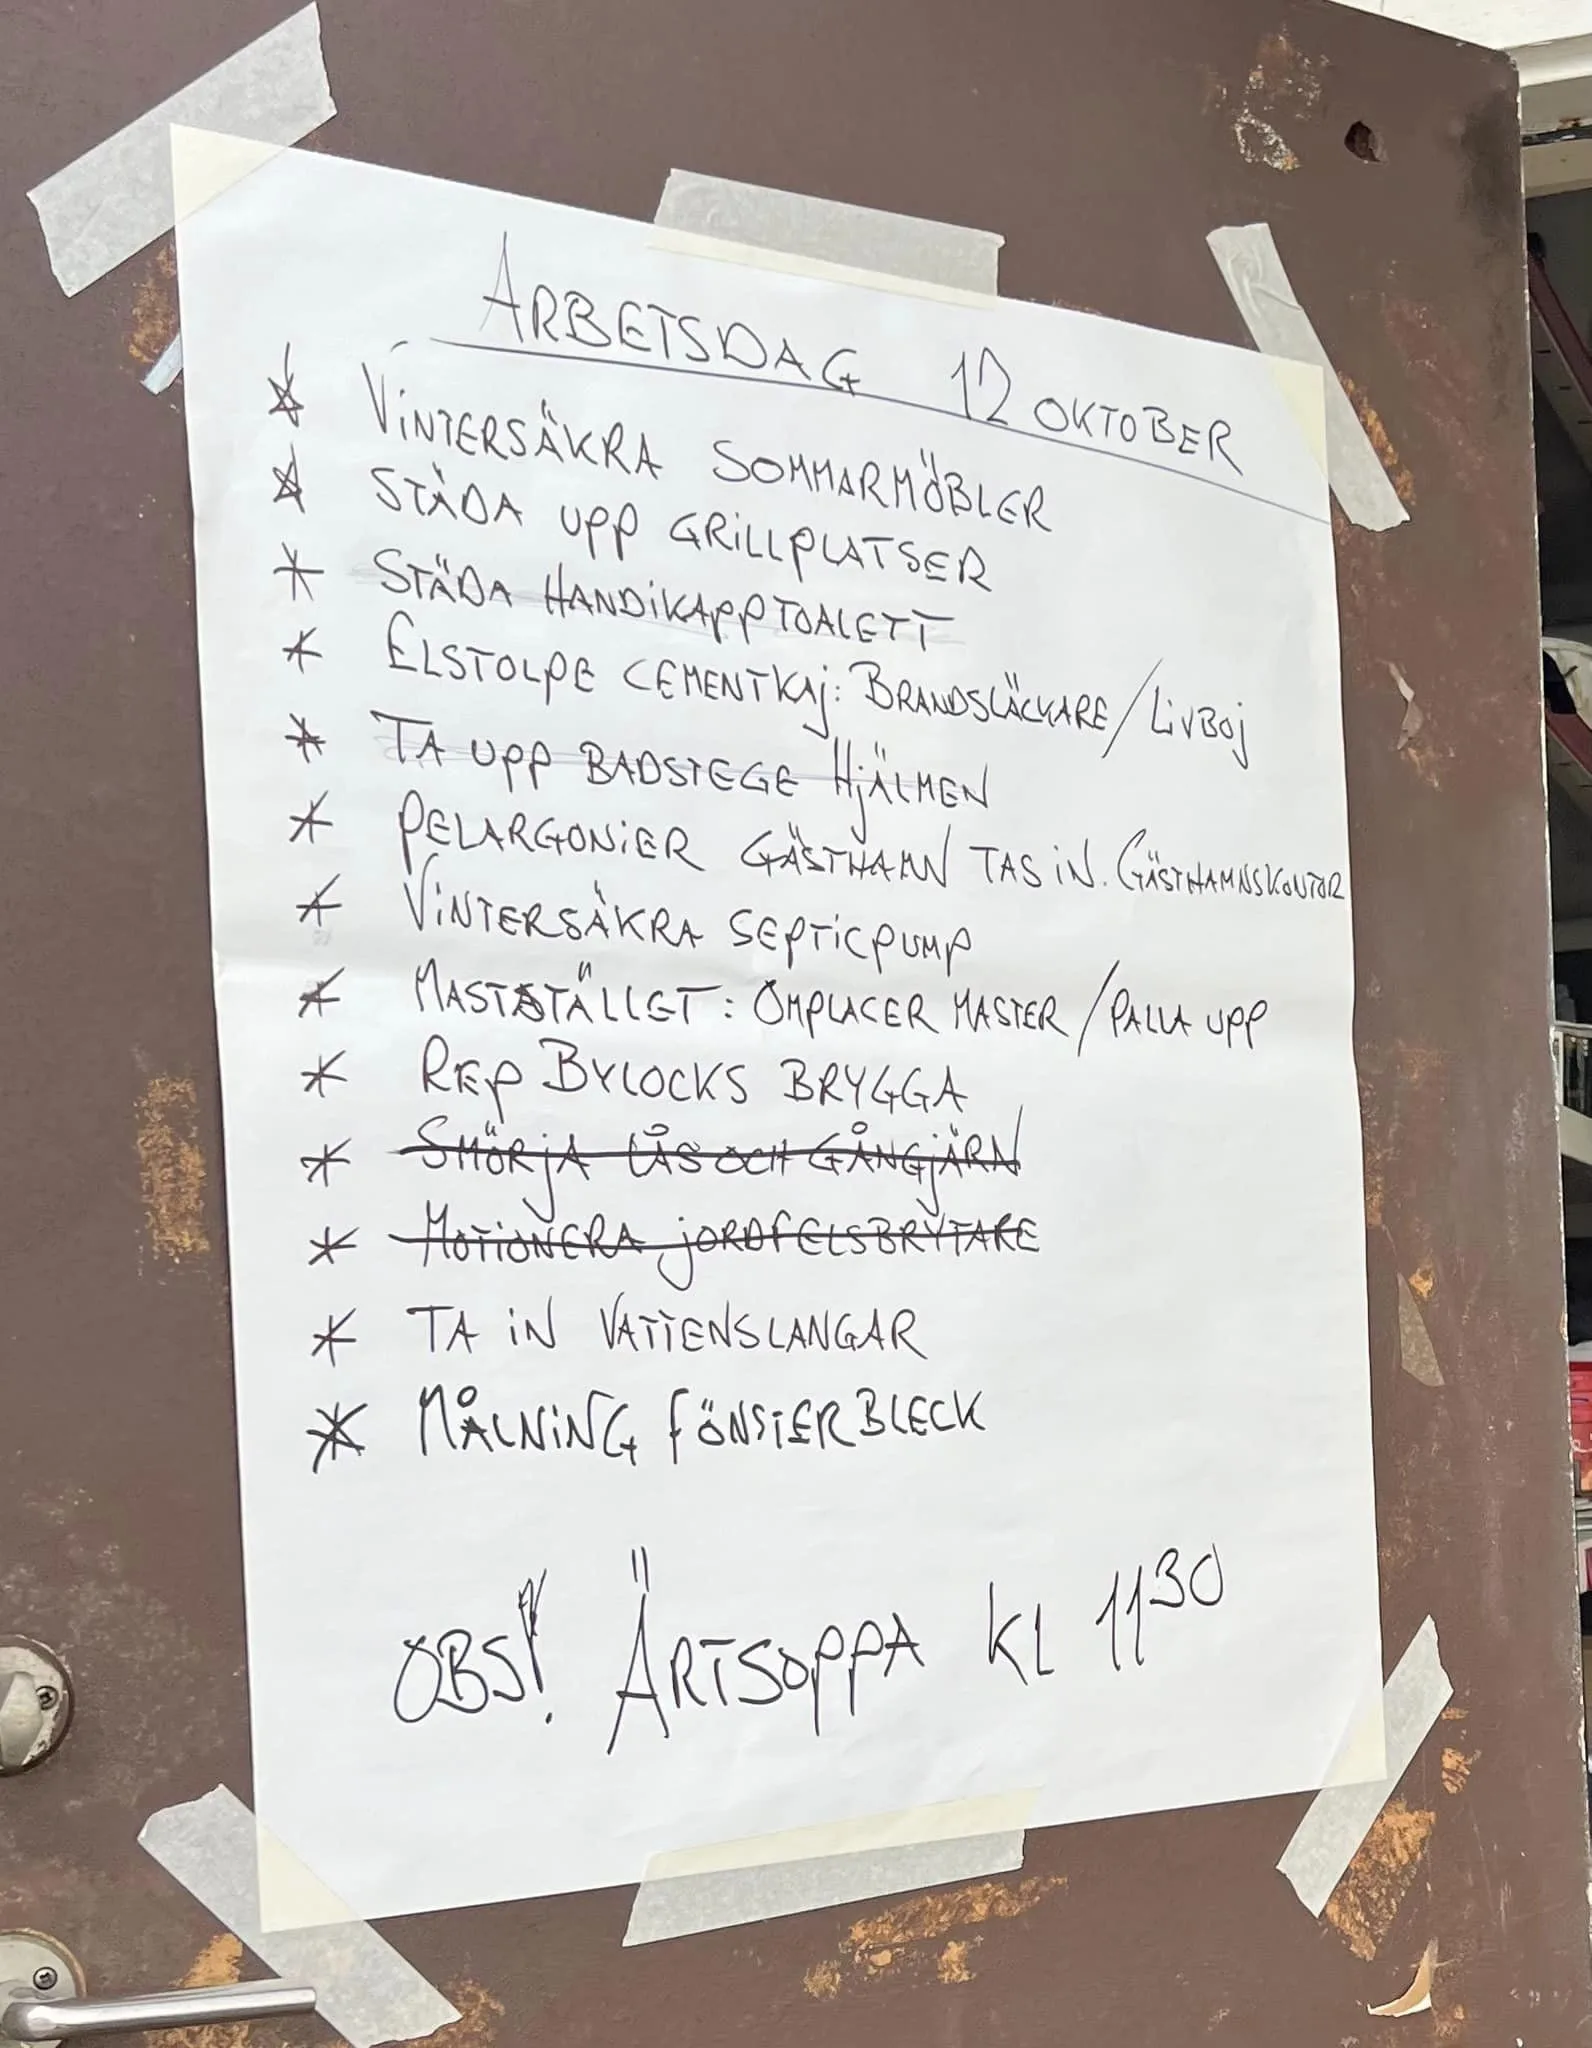 ARBETSDAG 12 OKTOBER
* VINTERSÄKRA SOMMARMÖBLER
* STÄDA UPP GRILLPLATSER
* STÄDA HANDIKAPPTOALETT
* ELSTOLPE CEMENTKAJ: BRANDSLÄCKARE/LIVBOJ
* TA UPP BADSTEGE HJÄLMEN
* PELARGONIER GÄSTHAMN TAS IN. GÄSTHAMNSKONTOR
* VINTERSÄKRA SEPTICPUMP
* MASTSTÄLLET: OMPLACER MASTER/PALLA UPP
* REP BYLOCKS BRYGGA
* SMÖRJA LÅS OCH GÅNGJÄRN
* MOTIONERA JORDFELSBRYTARE
* TA IN VATTENSLANGAR
* MÅLNING FÖNSTERBLECK
OBS! ÄRTSOPPA KL 11 30